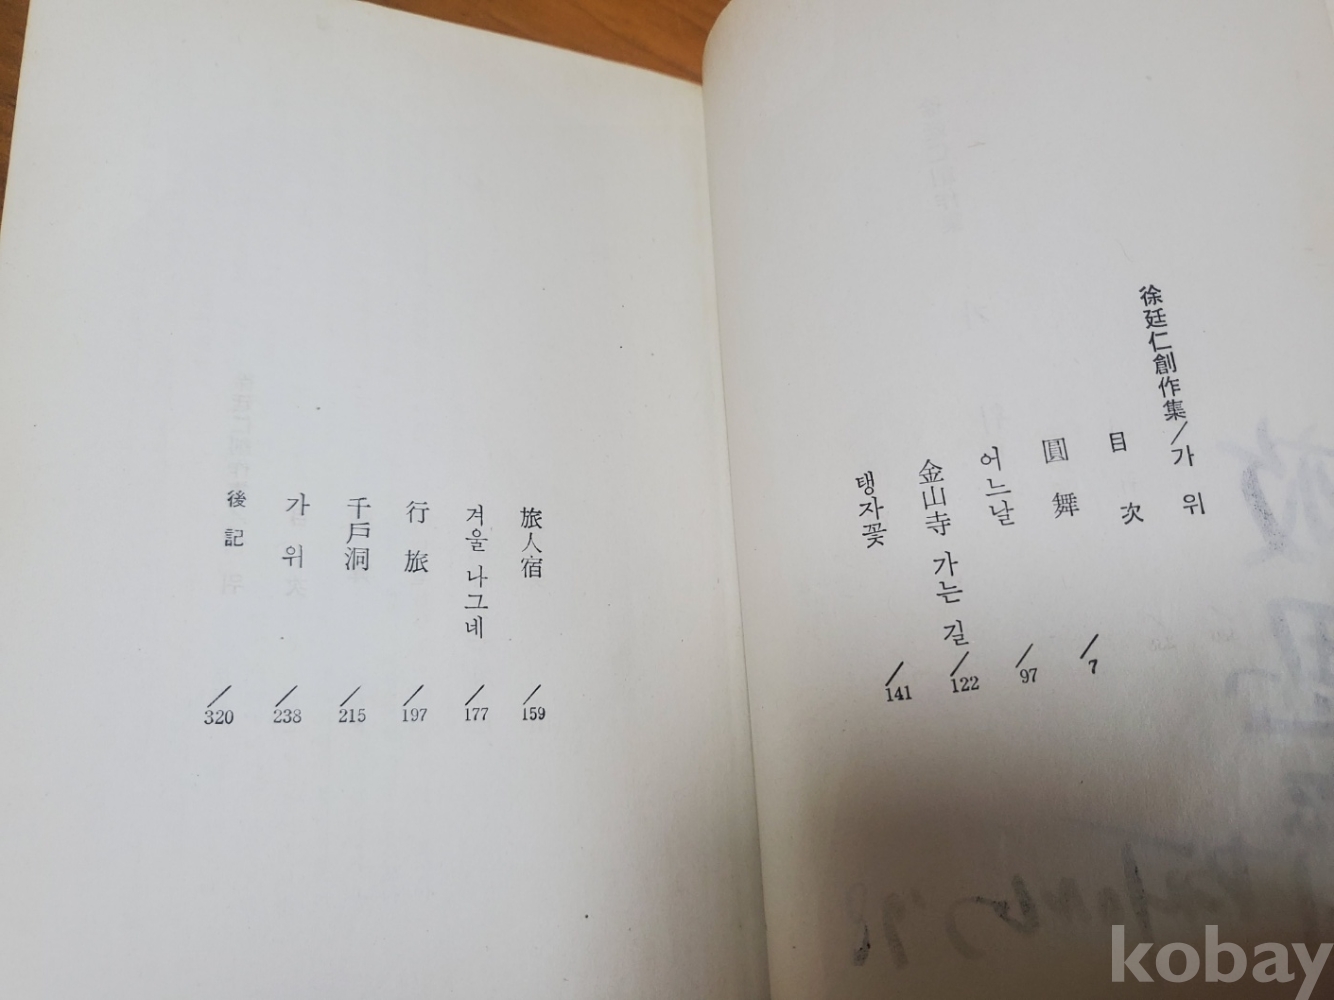 徐廷仁創作集/가위
目次
圓舞/7
어느날/97
金山寺 가는 길/122
탱자꽃/141
旅人宿/159
겨울 나그네/177
行旅/197
千戶洞/215
가위/238
後記/320
kobay